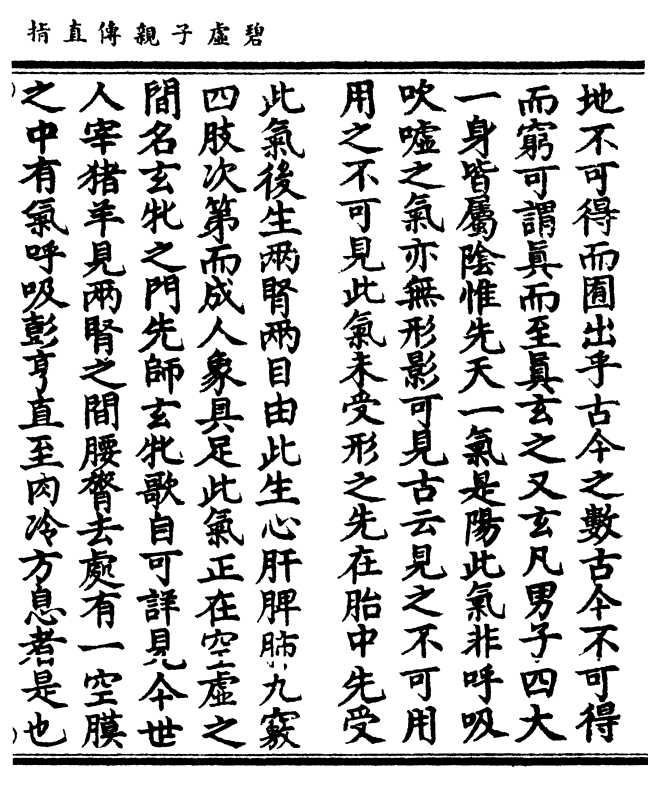 碧虛子親傳直指
地不可得而囿出乎古今之數古今不可得
而窮可謂眞而至眞玄之又玄凡男子四大
一身皆屬陰惟先天一氣是陽此氣非呼吸
吹噓之氣亦無形影可見古云見之不可用
用之不可見此氣未受形之先在胎中先受
此氣後生兩腎兩目由此生心肝脾肺九竅
四肢次第而成人象具足此氣正在空虛之
間名玄牝之門先師玄牝歌自可詳見今世
人宰猪羊見兩腎之間腰脊去處有一空膜
之中有氣呼吸彭亨直至肉冷方息者是也